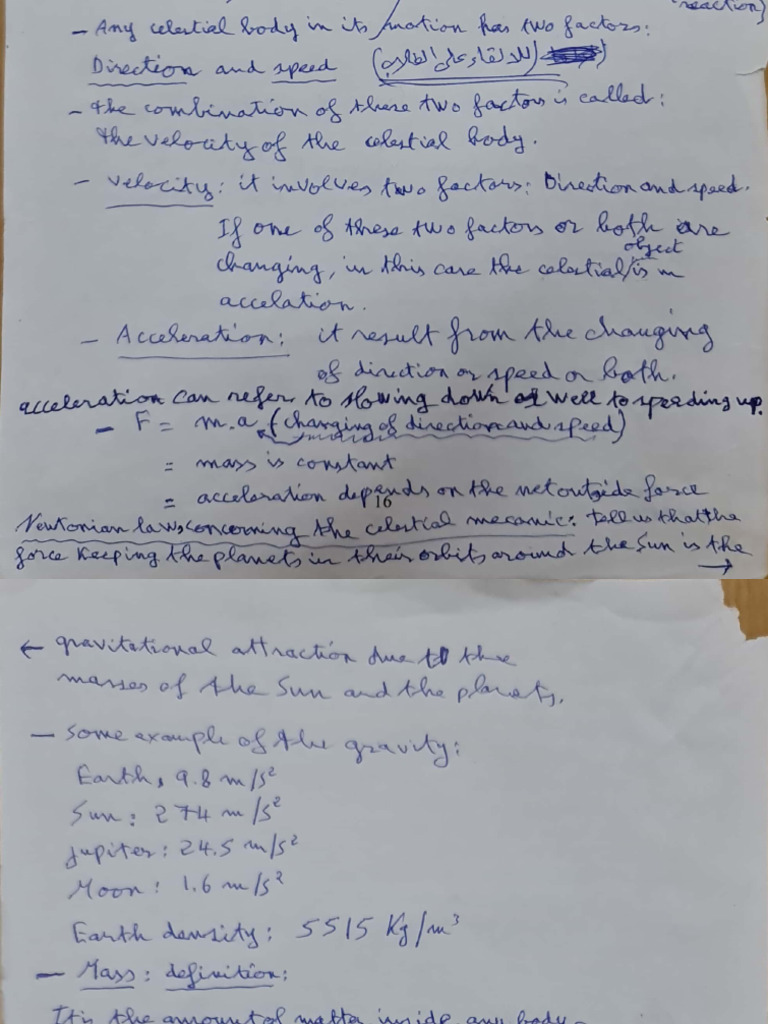 reaction)
- Any celestial body in its motion has two factors:
Direction and speed (للالقاء على الطلاب)
- the combination of these two factors is called:
the velocity of the celestial body.
- velocity: it involves two factors: Direction and speed.
If one of these two factors or both are
object
changing, in this case the celestial/is in
accelation.
- Acceleration: it result from the changing
of direction or speed or both.
acceleration can refer to slowing down as well to speeding up.
- F = m.a (changing of direction and speed)
= mass is constant
= acceleration depends on the net outside force
16
Newtonian laws concerning the celestial mecamic: tell us that the
force keeping the planets in their orbits around the Sun is the
→
← gravitational attraction due to the
masses of the Sun and the planets.
- some example of the gravity:
Earth, 9.8 m/s²
Sun: 274 m/s²
Jupiter: 24.5 m/s²
Moon: 1.6 m/s²
Earth density: 5515 Kg/m³
- Mass: definition:
It is the amount of matter inside any body-